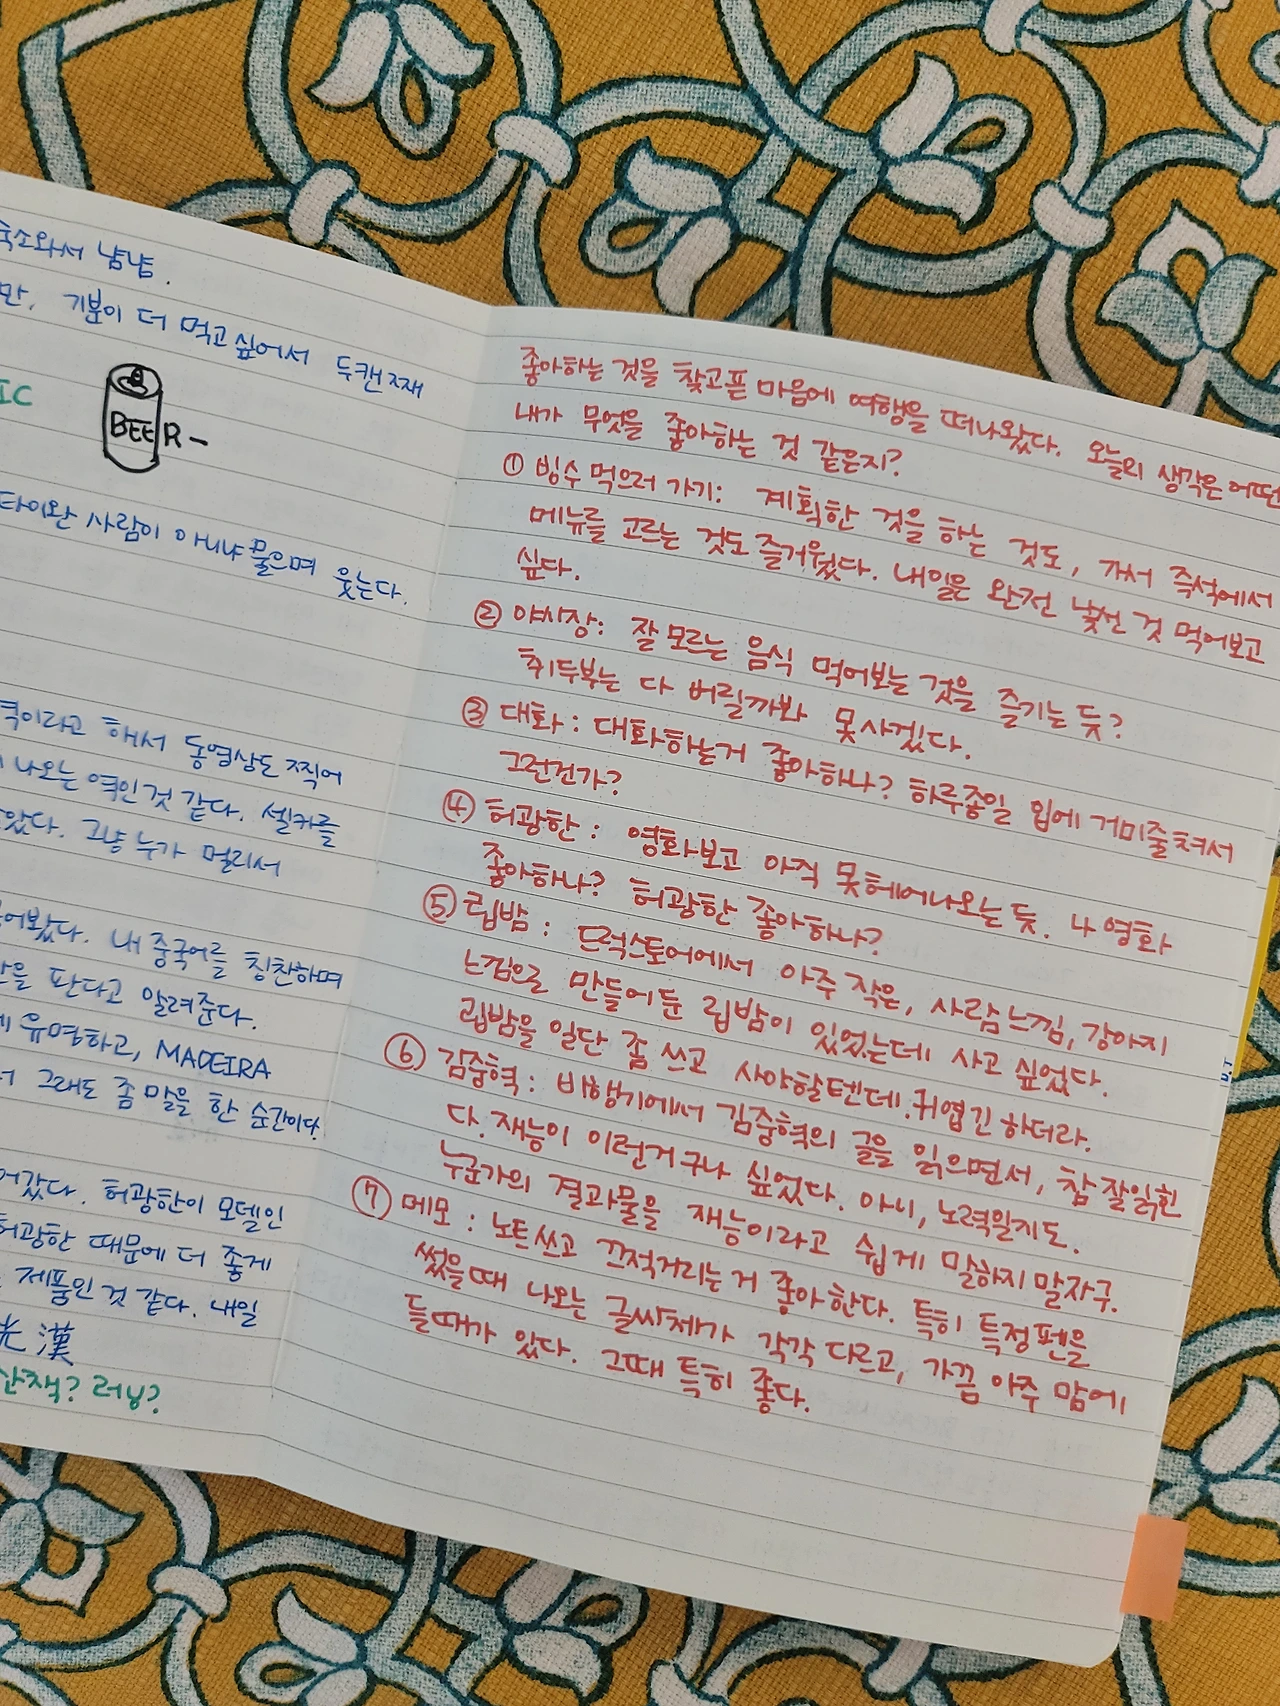 숙소와서 냠냠.
만. 기분이 더 먹고 싶어서 두캔째
IC
BEER-
타이완 사람이 아니냐 물으며 웃는다.
역이라고 해서 동영상도 찍어
나오는 역인 것 같다. 셀카를
않았다. 그냥 누가 멀리서
어봤다. 내 중국어를 칭찬하며
을 판다고 알려준다.
유명하고, MADEIRA
그래도 좀 말을 한 순간이다.
어갔다. 허광한이 모델인
허광한 때문에 더 좋게
제품인 것 같다. 내일
光漢
산책? 러닝?
좋아하는 것을 찾고픈 마음에 여행을 떠나왔다. 오늘의 생각은 어떤
내가 무엇을 좋아하는 것 같은지?
① 빙수 먹으러 가기: 계획한 것을 하는 것도, 가서 즉석에서
메뉴를 고르는 것도 즐거웠다. 내일은 완전 낯선 것 먹어보고
싶다.
② 야시장: 잘 모르는 음식 먹어보는 것을 즐기는 듯?
취두부는 다 버릴까봐 못사겠다.
③ 대화: 대화하는거 좋아하나? 하루종일 입에 거미줄쳐서
그런건가?
④ 허광한: 영화보고 아직 못헤어나오는 듯. 나 영화
좋아하나? 허광한 좋아하나?
⑤ 립밤: 드럭스토어에서 아주 작은, 사람느낌, 강아지
느낌으로 만들어둔 립밤이 있었는데 사고 싶었다.
립밤을 일단 좀 쓰고 사야할텐데. 귀엽긴 하더라.
⑥ 김중혁: 비행기에서 김중혁의 글을 읽으면서, 참 잘읽힌
다. 재능이 이런거구나 싶었다. 아니, 노력일지도.
누군가의 결과물을 재능이라고 쉽게 말하지 말자구.
⑦ 메모: 노트쓰고 끄적거리는거 좋아한다. 특히 특정펜을
썼을때 나오는 글씨체가 각각 다르고, 가끔 아주 맘에
들때가 있다. 그때 특히 좋다.